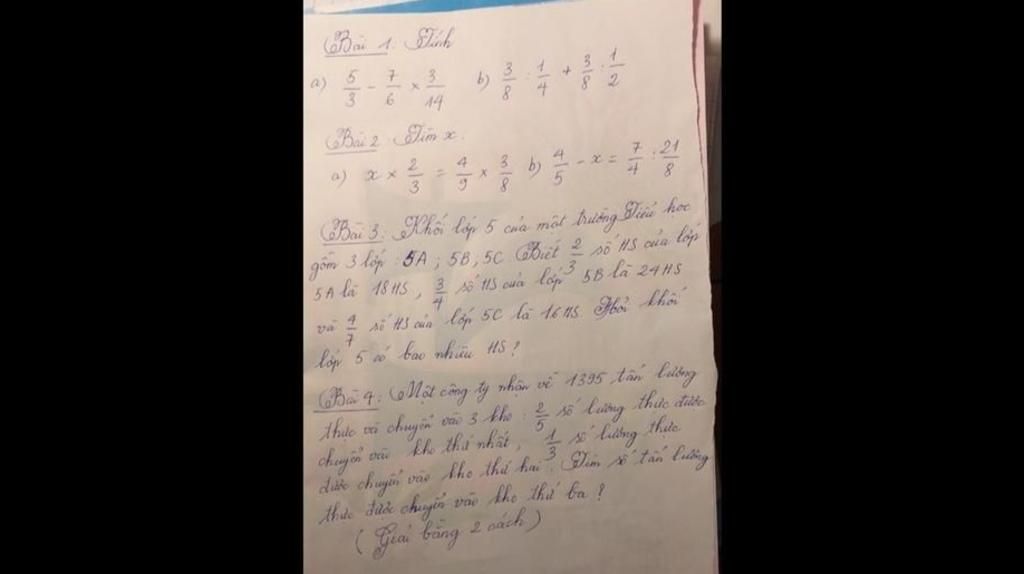 Bài 1: Tính
a) 5/3 - 7/6 × 3/14 b) 3/8 : 1/4 + 3/8 : 1/2
Bài 2: Tìm x:
a) x × 2/3 = 4/9 × 3/8 b) 4/5 - x = 7/4 : 21/8
Bài 3: Khối lớp 5 của một trường Tiểu học
gồm 3 lớp: 5A; 5B; 5C. Biết 2/3 số HS của lớp
5A là 18HS, 3/4 số HS của lớp 5B là 24HS
và 4/7 số HS của lớp 5C là 16HS. Hỏi khối
lớp 5 có bao nhiêu HS?
Bài 4: Một công ty nhận về 1395 tấn lương
thực và chuyển vào 3 kho: 2/5 số lương thực được
chuyển vào kho thứ nhất, 1/3 số lương thực
được chuyển vào kho thứ hai. Tìm số tấn lương
thực được chuyển vào kho thứ ba?
(Giải bằng 2 cách)